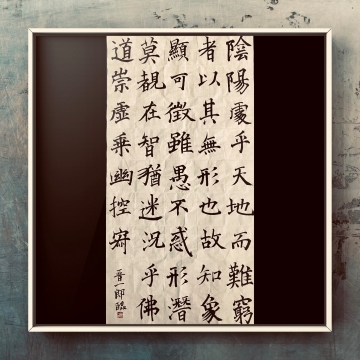 陰陽處乎天地而難窮
者以其無形也故知象
顯可徵雖愚不惑形潛
莫覩在智猶迷況乎佛
道崇虛乘幽控寂
晋一郎臨